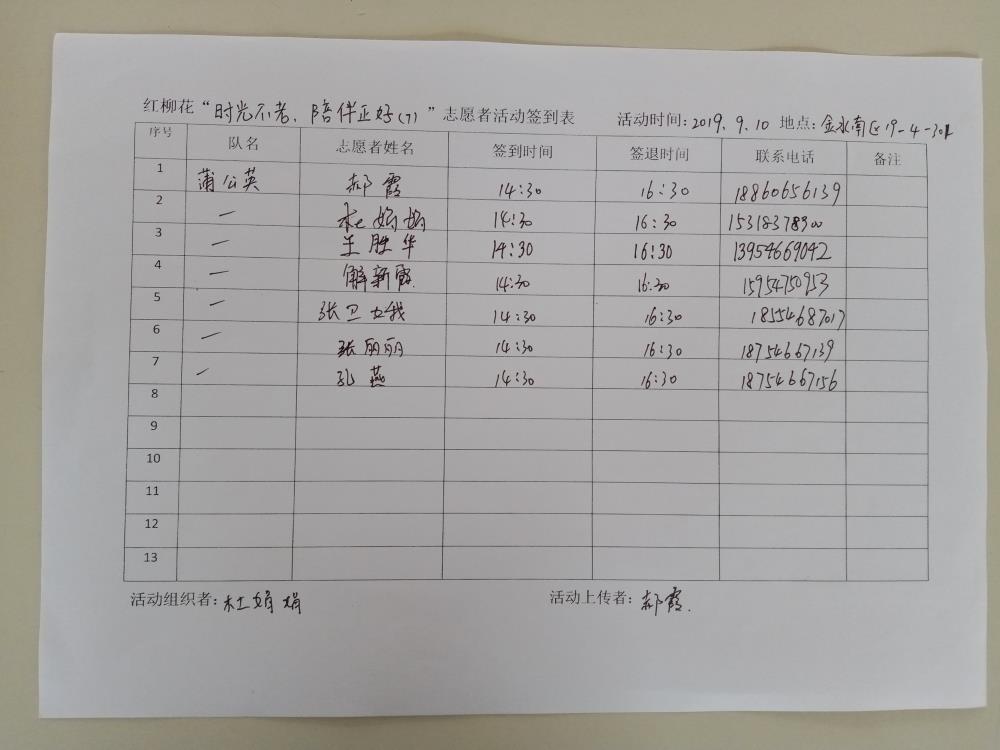 红柳花“时光不老，陪伴正好(7)”志愿者活动签到表 活动时间：2019.9.10 地点：金水南区19-4-301
序号 队名 志愿者姓名 签到时间 签退时间 联系电话 备注
1 蒲公英 郝霞 14:30 16:30 18860656139
2 一 杜娟娟 14:30 16:30 15318378900
3 一 王胜华 14:30 16:30 13954669042
4 一 解新霞 14:30 16:30 15954750953
5 一 张卫娥 14:30 16:30 18554687017
6 一 张丽丽 14:30 16:30 18754667139
7 一 孔燕 14:30 16:30 18754667156
8
9
10
11
12
13
活动组织者：杜娟娟 活动上传者：郝霞.